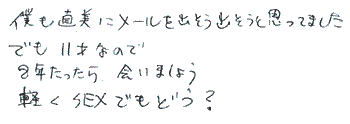 僕も直美にメールを出そう出そうと思ってました
でも 11才なので
年たったら 会いましょう
軽くSEXでもどう?